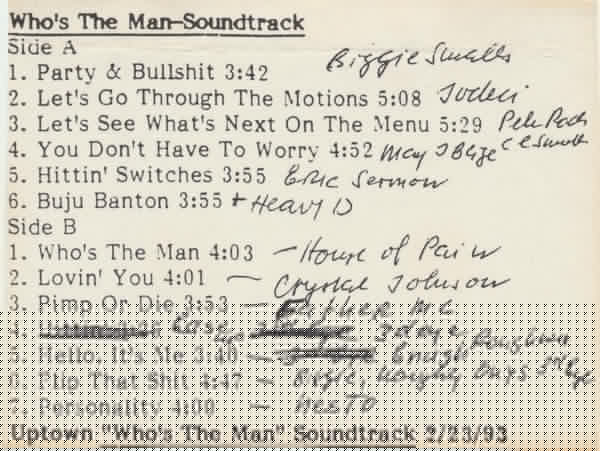 Who's The Man-Soundtrack
Side A
1. Party & Bullshit 3:42 Biggie Smalls
2. Let's Go Through The Motions 5:08 Jodeci
3. Let's See What's Next On The Menu 5:29 Pete Rock
4. You Don't Have To Worry 4:52 Mary J Blige C L Smooth
5. Hittin' Switches 3:55 Eric Sermon
6. Buju Banton 3:55 + Heavy D
Side B
1. Who's The Man 4:03 - House of Pain
2. Lovin' You 4:01 - Crystal Johnson
3. Pimp Or Die 3:53 - Father MC
4. Case 3rd eye
5. Hello, It's Me 3:40 -
6. Flip That Shit 4:47 - 3rd Eye
7. Personality 4:00 -
Uptown "Who's The Man" Soundtrack 2/23/93